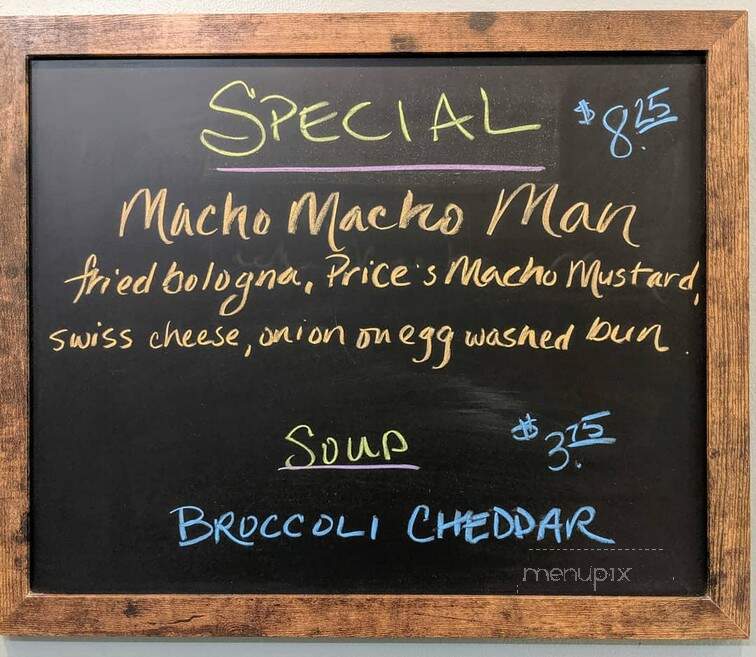 SPECIAL $8.25
Macho Macho Man
fried bologna, Price's Macho Mustard,
swiss cheese, onion on egg washed bun.
SOUP $3.75
BROCCOLI CHEDDAR
menupix